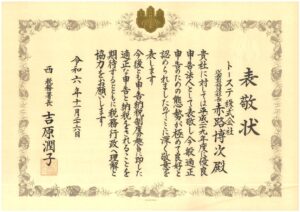 表敬状
トーステ株式会社
代表取締役 赤路博次 殿
貴社に対しては平成二十九年に優良
申告法人として表敬し今般適正
申告のための態勢が極めて良好と
認められましたのでここに深く敬意を
表します
今後とも申告納税制度の趣旨に即した
適正な申告と納税をされることを
期待するとともに税務行政へ理解と
協力をお願いします
令和六年十一月二十六日
西税務署長
吉原潤子